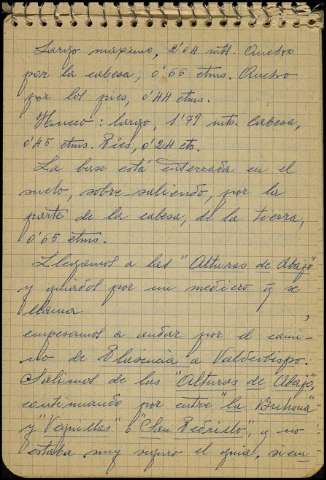 Largo maximo, 2'04 mtt. Ancho
por la cabesa, 0'65 ctms. Ancho
por los pies, 0'44 ctms.
Hueco: largo, 1'79 mts. Cabesa,
0'45 ctms. Pies, 0'24 ct.
La base está enterrada en el
suelo, sobre saliendo, por la
parte de la cabesa, de la tierra,
0'05 ctms.
Llegamos a las "Alturas de Abajo"
y guiados por un mediero q se
llama ,
empesamos a andar por el cami-
no de Plasencia a Valdeobispo.
Salimos de las "Alturas de Abajo",
continuando por entre "la
y " " o "San ", y no
estaba muy seguro el guia, sien-